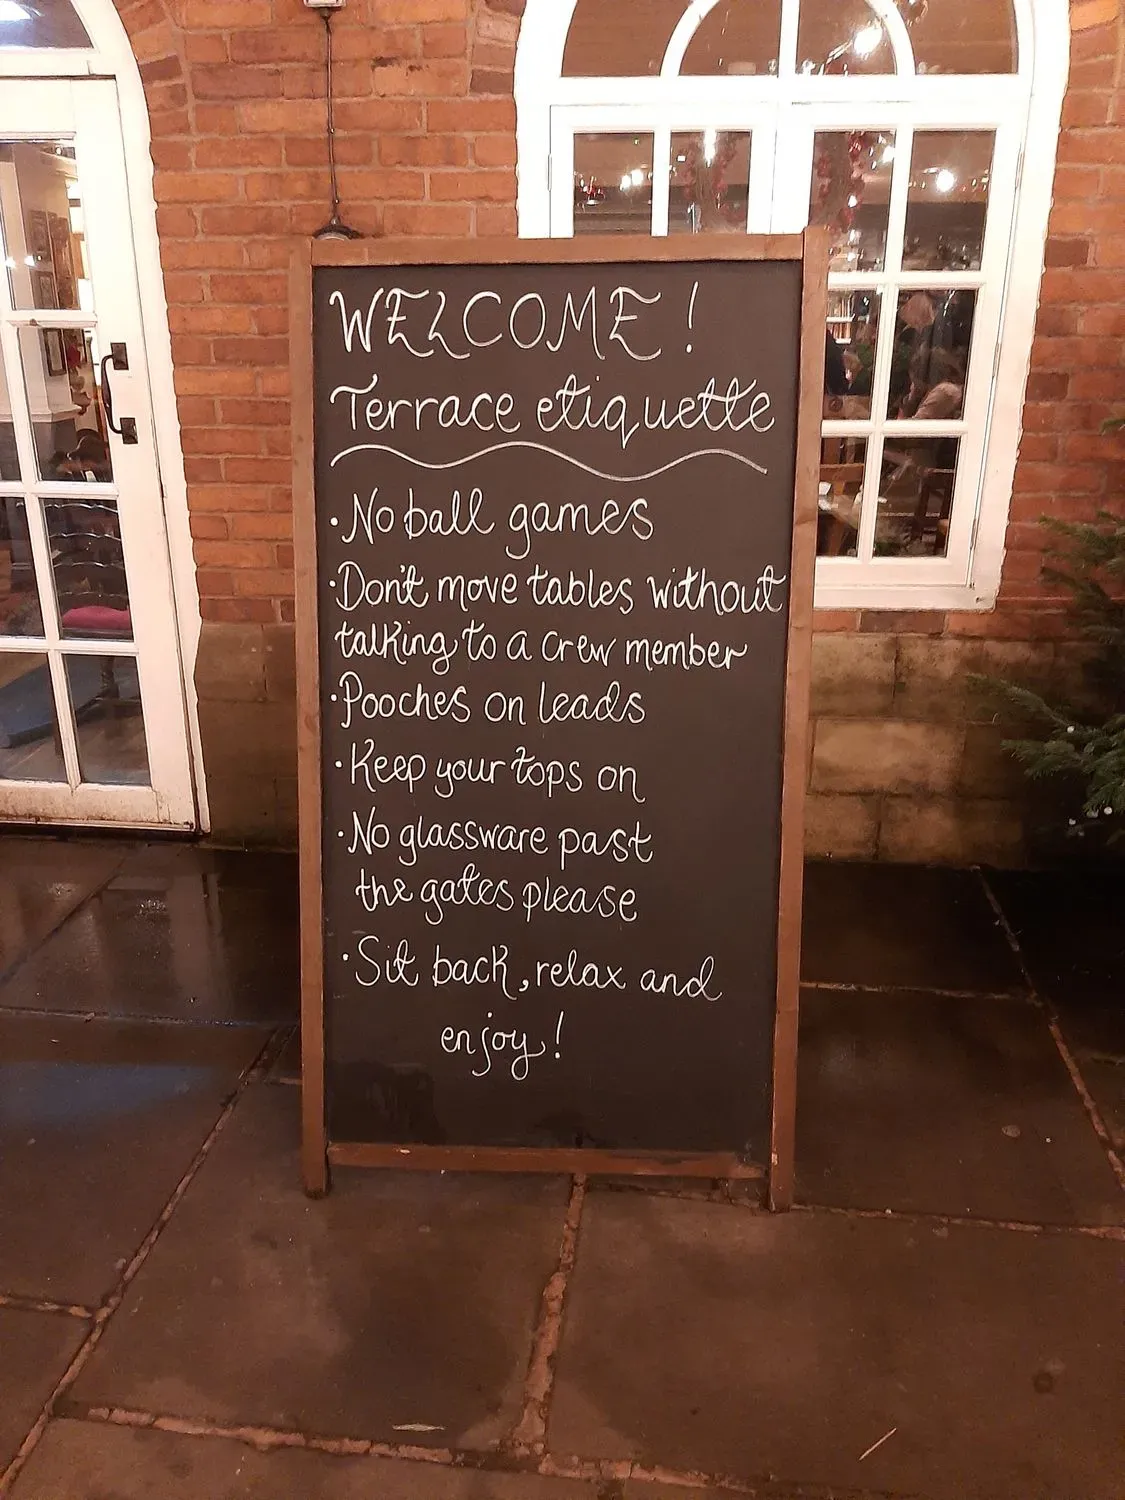 WELCOME!
Terrace etiquette
· No ball games
· Don't move tables without
talking to a crew member
· Pooches on leads
· Keep your tops on
· No glassware past
the gates please
· Sit back, relax and
enjoy!